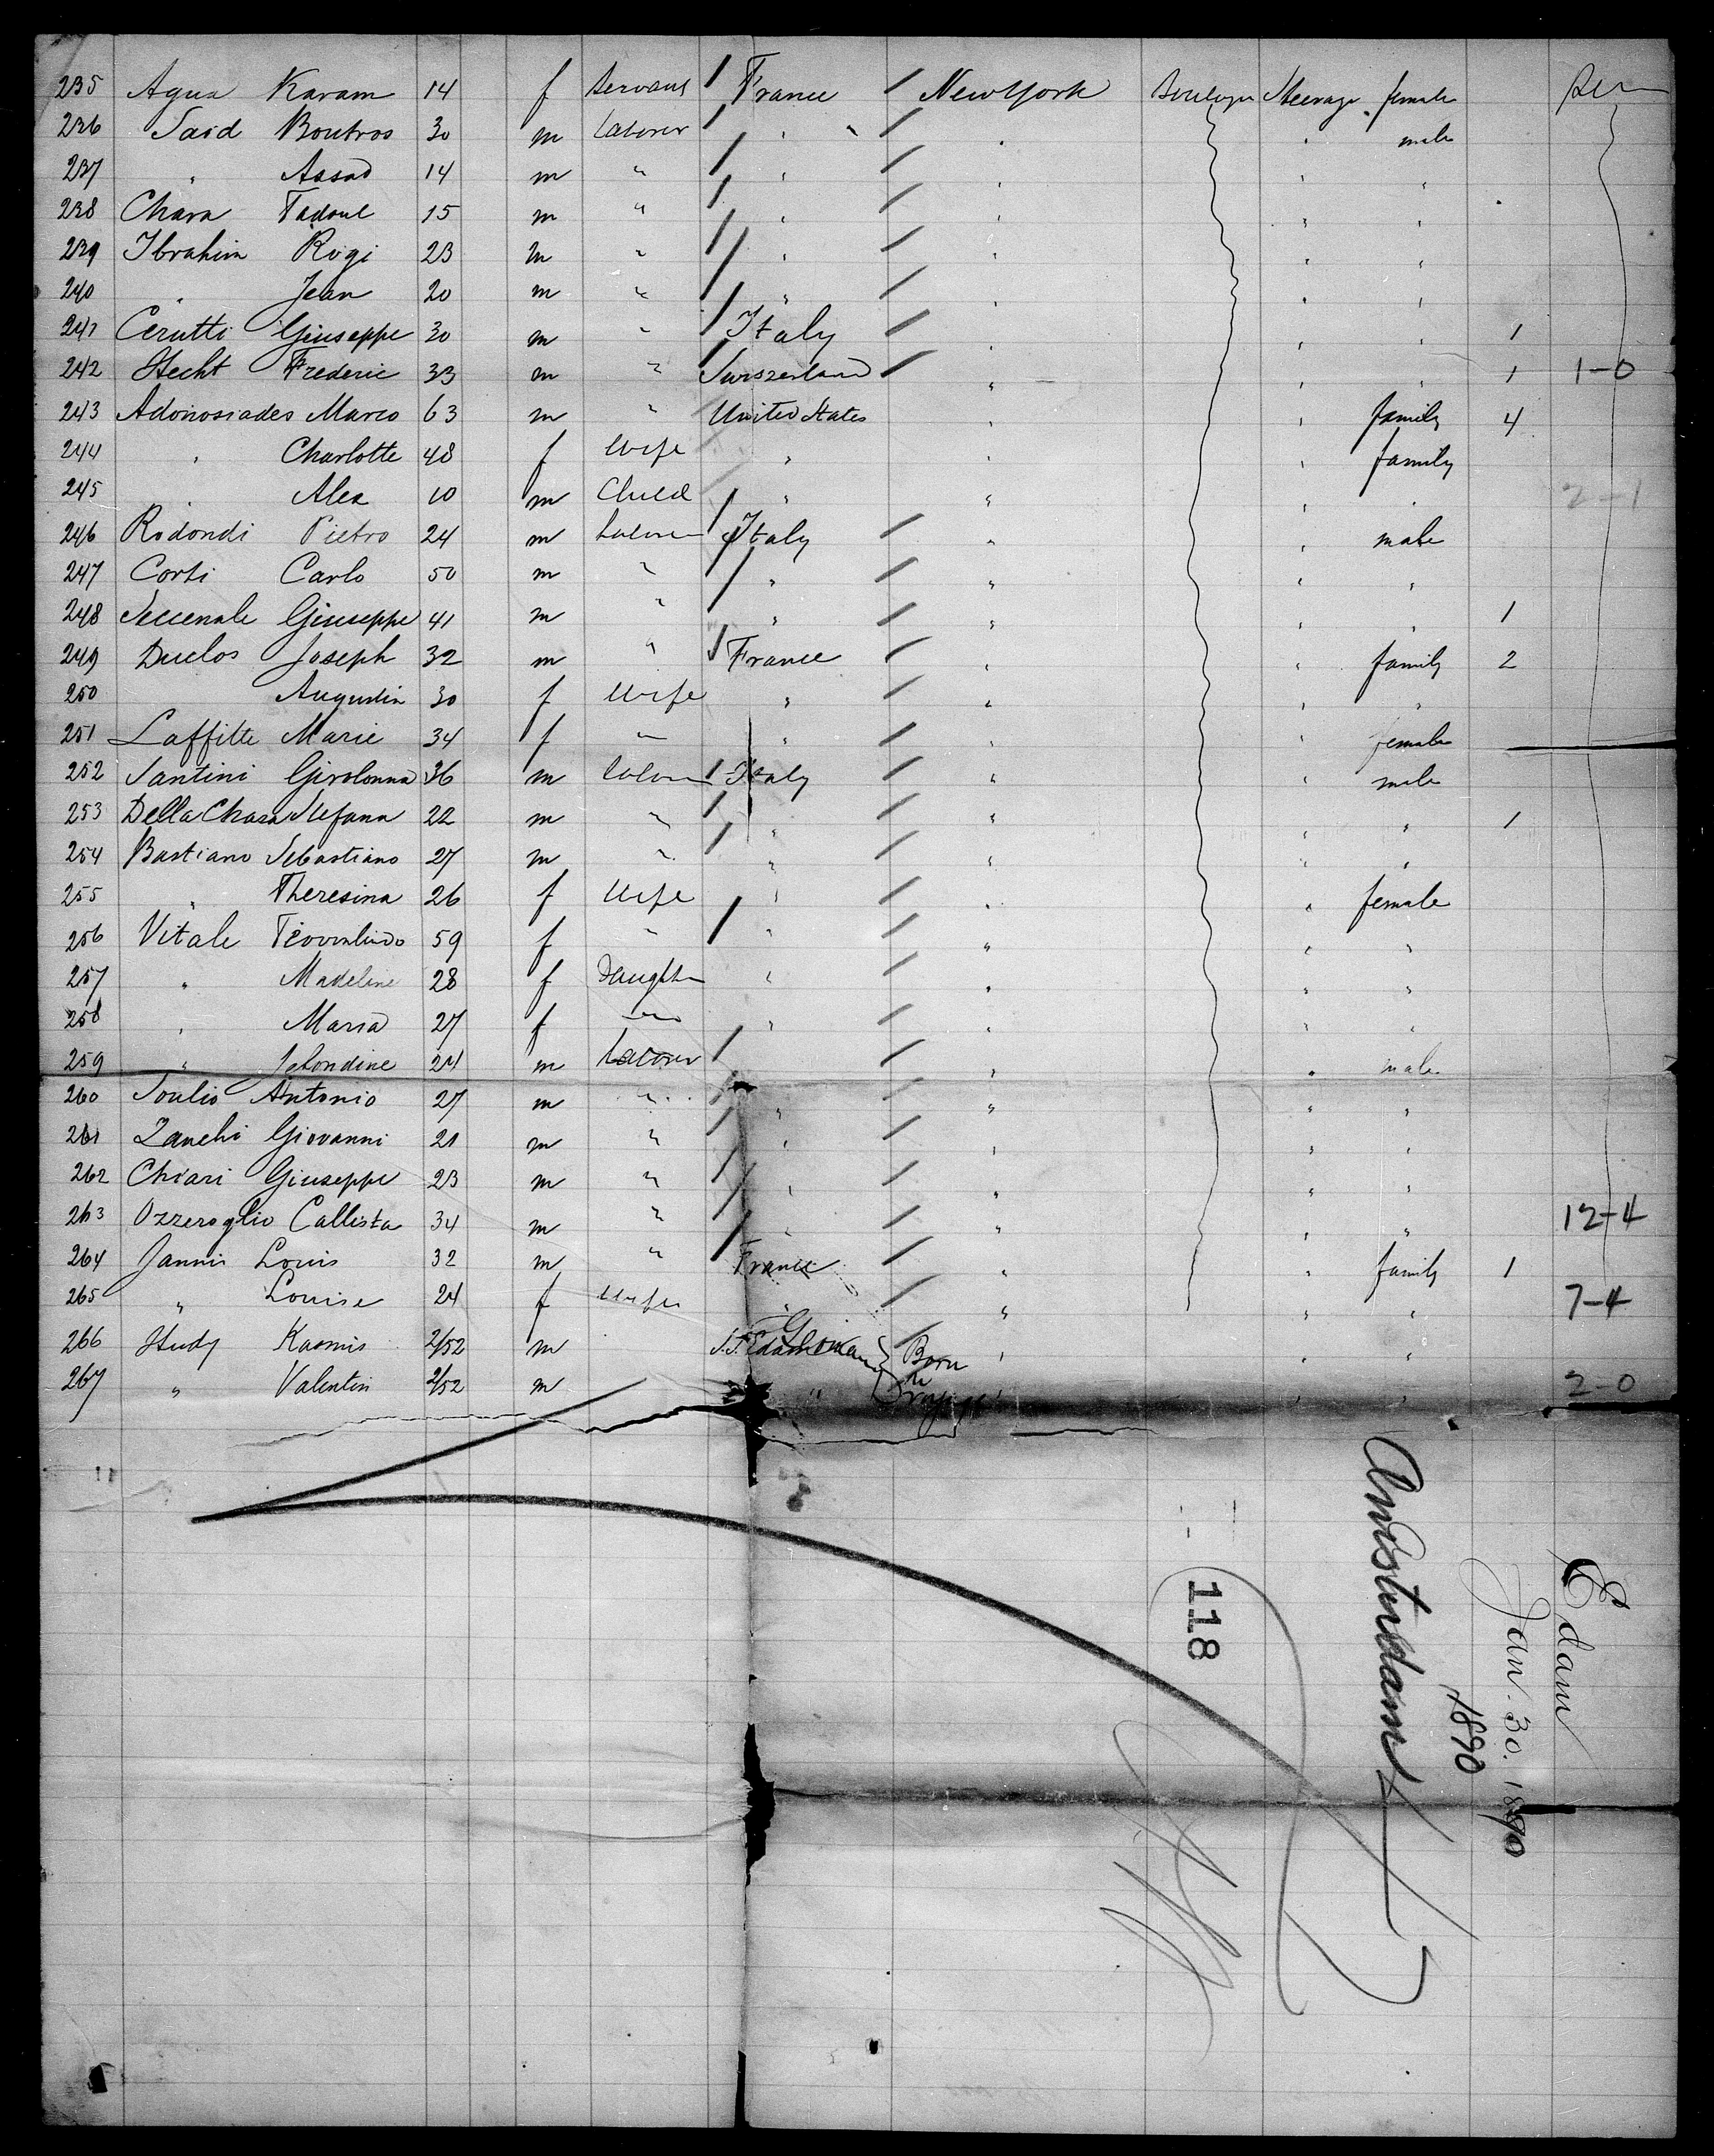 235 Agua Karam 14 f Servant France New York Boulogne Steerage female
236 Said Boutros 30 m Laborer " " " male
237 " Assad 14 m " " " " "
238 Chara Tadoul 15 m " " " " "
239 Ibrahim Rogi 23 m " " " " "
240 " Jean 20 m " " " " "
241 Cerutti Giuseppe 30 m " Italy " " " 1
242 Hecht Frederic 33 m " Swiszerland " " " 1 1-0
243 Adonosiades Marco 63 m " United States " " family 4
244 " Charlotte 48 f Wife " " " family
245 " Alex 10 m Child " " " " 2-1
246 Rodondi Pietro 24 m Laborer Italy " " male
247 Corti Carlo 50 m " " " " "
248 Seccenale Giuseppe 41 m " " " " " 1
249 Duclos Joseph 32 m " France " " family 2
250 Augustin 30 f Wife " " " "
251 Laffitte Marie 34 f " " " " female
252 Santini Girolonna 36 m Laborer Italy " " male
253 Della Chara Stefana 22 m " " " " " 1
254 Bastiano Sebastiano 27 m " " " " "
255 " Theresina 26 f Wife " " " female
256 Vitale 59 f " " " " "
257 " Madeline 28 f Daughter " " " "
258 " Maria 27 f " " " " "
259 " 24 m Laborer " " male
260 Soulio Antonio 27 m " " " " "
261 Zanchi Giovanni 21 m " " " " "
262 Chiari Giuseppe 23 m " " " " "
263 Ozzeroglio Callista 34 m " " " " " 12-4
264 Jannis Louis 32 m " France " " family 1
265 " Louise 24 f Wife " " " " 7-4
266 Study Kasmis 2/52 m S.S. Edam Born " " "
267 " Valentin 2/52 m " " " " 2-0
Edam
Jan. 30. 1890
1890
Amsterdam
118